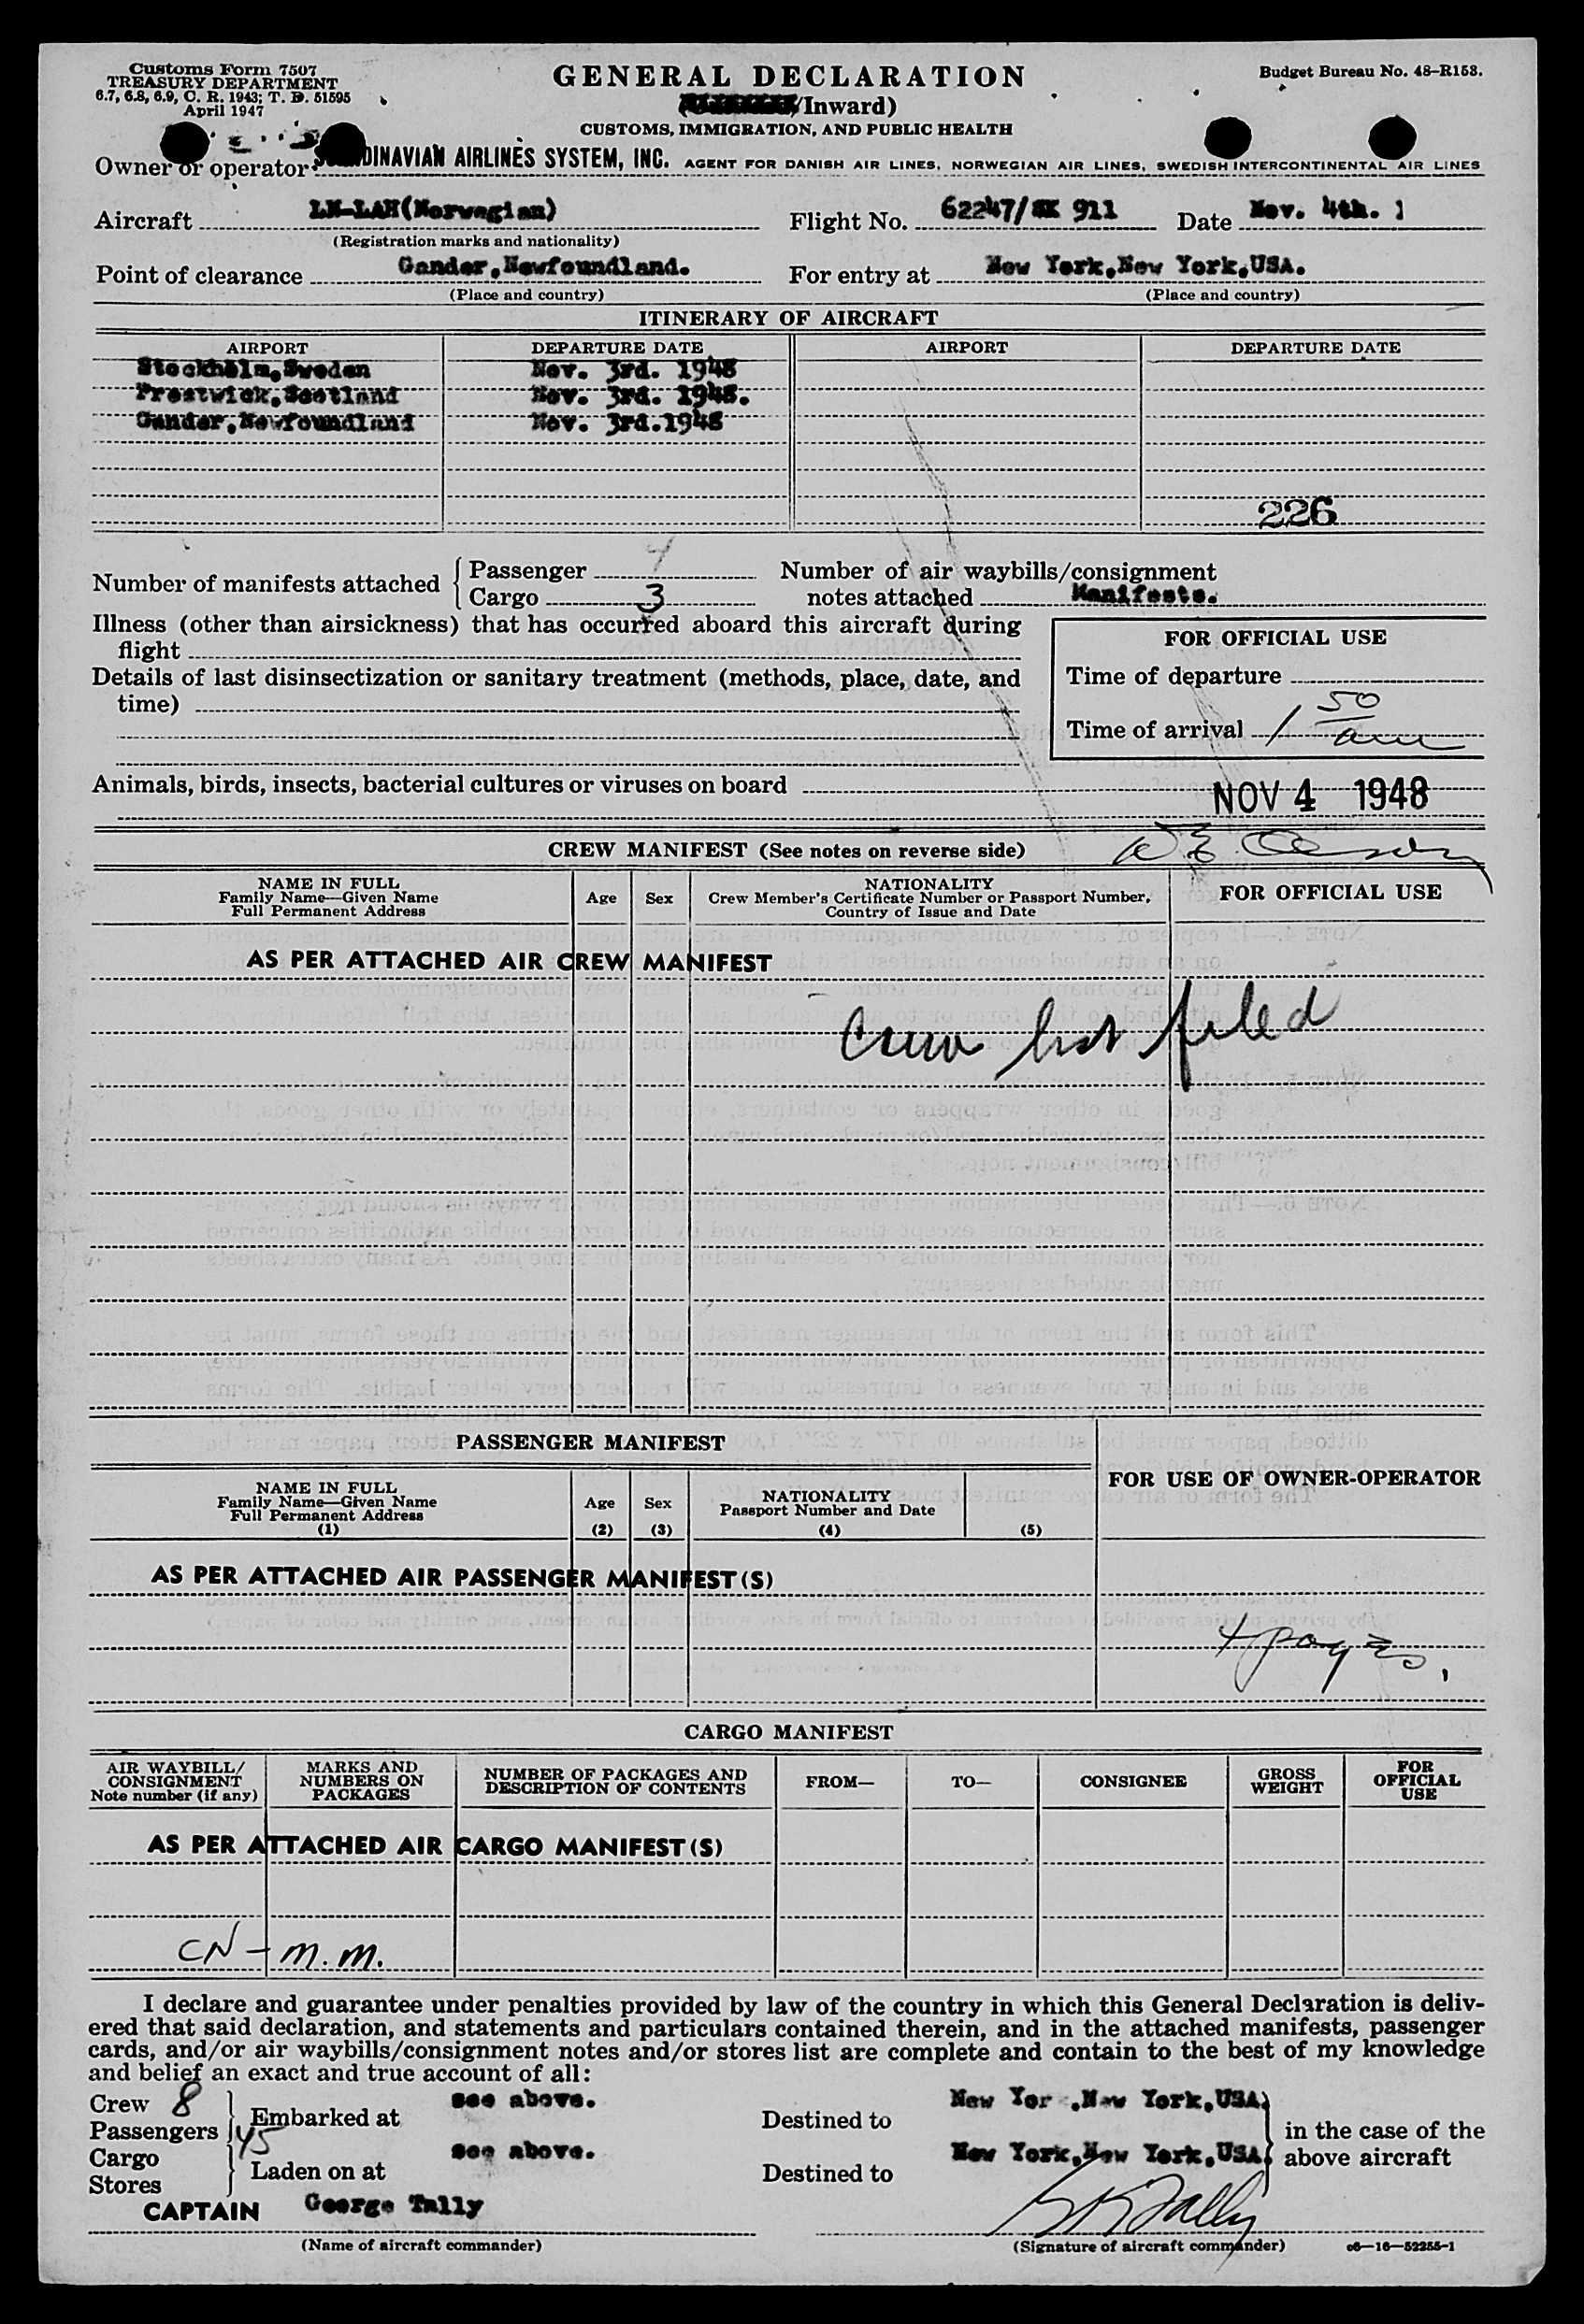 Customs Form 7507
TREASURY DEPARTMENT
6.7, 6.8, 6.9, C. R. 1943; T. D. 51595
April 1947
GENERAL DECLARATION
/Inward)
CUSTOMS, IMMIGRATION, AND PUBLIC HEALTH
Budget Bureau No. 48-R158.
Owner or operator DINAVIAN AIRLINES SYSTEM, INC. AGENT FOR DANISH AIR LINES, NORWEGIAN AIR LINES, SWEDISH INTERCONTINENTAL AIR LINES
Aircraft LN-LAH(Norwegian) Flight No. 62247/SK 911 Date Nov. 4th. 1
(Registration marks and nationality)
Point of clearance Gander,Newfoundland. For entry at New York,New York,USA.
(Place and country) (Place and country)
ITINERARY OF AIRCRAFT
AIRPORT DEPARTURE DATE AIRPORT DEPARTURE DATE
Stockholm,Sweden Nov. 3rd. 1948
Prestwick,Scotland Nov. 3rd. 1948.
Gander,Newfoundland Nov. 3rd.1948
226
Number of manifests attached { Passenger 4 Number of air waybills/consignment
Cargo 3 notes attached Manifests.
Illness (other than airsickness) that has occurred aboard this aircraft during
flight
Details of last disinsectization or sanitary treatment (methods, place, date, and
time)
FOR OFFICIAL USE
Time of departure
Time of arrival 1 50 am
Animals, birds, insects, bacterial cultures or viruses on board
NOV 4 1948
CREW MANIFEST (See notes on reverse side)
NAME IN FULL
Family Name—Given Name
Full Permanent Address
Age Sex
NATIONALITY
Crew Member's Certificate Number or Passport Number,
Country of Issue and Date
FOR OFFICIAL USE
AS PER ATTACHED AIR CREW MANIFEST
Crew list filed
PASSENGER MANIFEST
NAME IN FULL
Family Name—Given Name
Full Permanent Address
(1)
Age
(2)
Sex
(3)
NATIONALITY
Passport Number and Date
(4)
(5)
FOR USE OF OWNER-OPERATOR
AS PER ATTACHED AIR PASSENGER MANIFEST(S)
4 pages.
CARGO MANIFEST
AIR WAYBILL/
CONSIGNMENT
Note number (if any)
MARKS AND
NUMBERS ON
PACKAGES
NUMBER OF PACKAGES AND
DESCRIPTION OF CONTENTS
FROM—
TO—
CONSIGNEE
GROSS
WEIGHT
FOR
OFFICIAL
USE
AS PER ATTACHED AIR CARGO MANIFEST(S)
CN - M.M.
I declare and guarantee under penalties provided by law of the country in which this General Declaration is deliv-
ered that said declaration, and statements and particulars contained therein, and in the attached manifests, passenger
cards, and/or air waybills/consignment notes and/or stores list are complete and contain to the best of my knowledge
and belief an exact and true account of all:
Crew 8
Passengers 45
Embarked at see above. Destined to New Yor ,New York,USA.
in the case of the
above aircraft
Cargo
Stores
Laden on at see above. Destined to New York,New York,USA.
CAPTAIN George Tally
(Name of aircraft commander) (Signature of aircraft commander) c6—16—52255-1